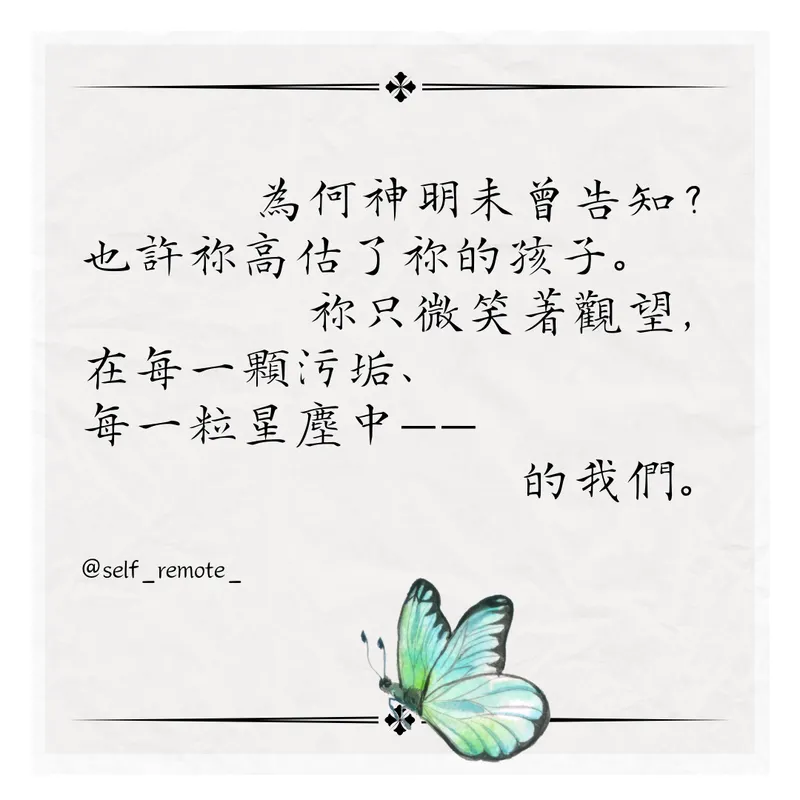 為何神明未曾告知?
也許祢高估了祢的孩子。
祢只微笑著觀望,
在每一顆污垢、
每一粒星塵中——
的我們。
@self_remote_